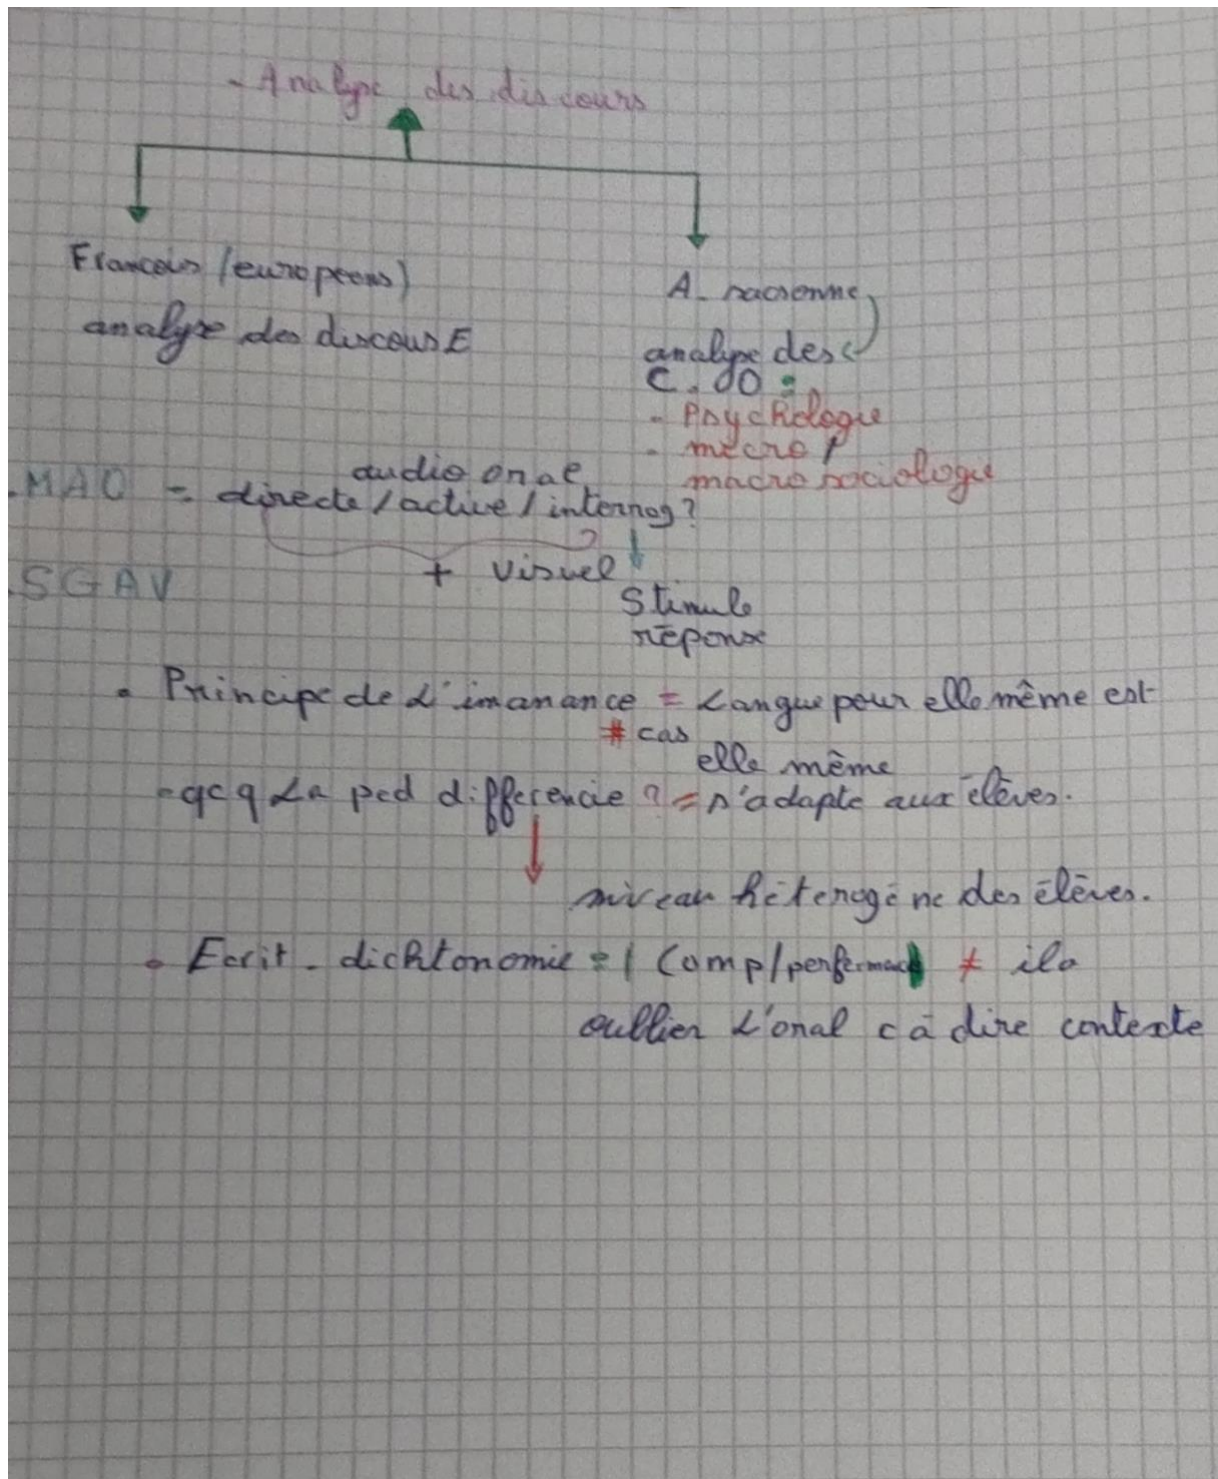 - Analyse des discours
Francais (europeens)
analyse des discours E
A - sacsonne
analyse des
C. 00 :
- Psychologie
- mecro /
macro sociologie
audio oral
.MAO = directe / active / interrog ?
+ visuel
.SGAV
Stimule
réponse
• Principe de L'imanance = Langue pour elle même est
# cas
elle même
- qcq La ped differencie ? = s'adapte aux élèves.
niveau hétérogène des élèves.
• Ecrit - dichtonomie = | Comp/performac ≠ ils
oublier L'oral c à dire contexte